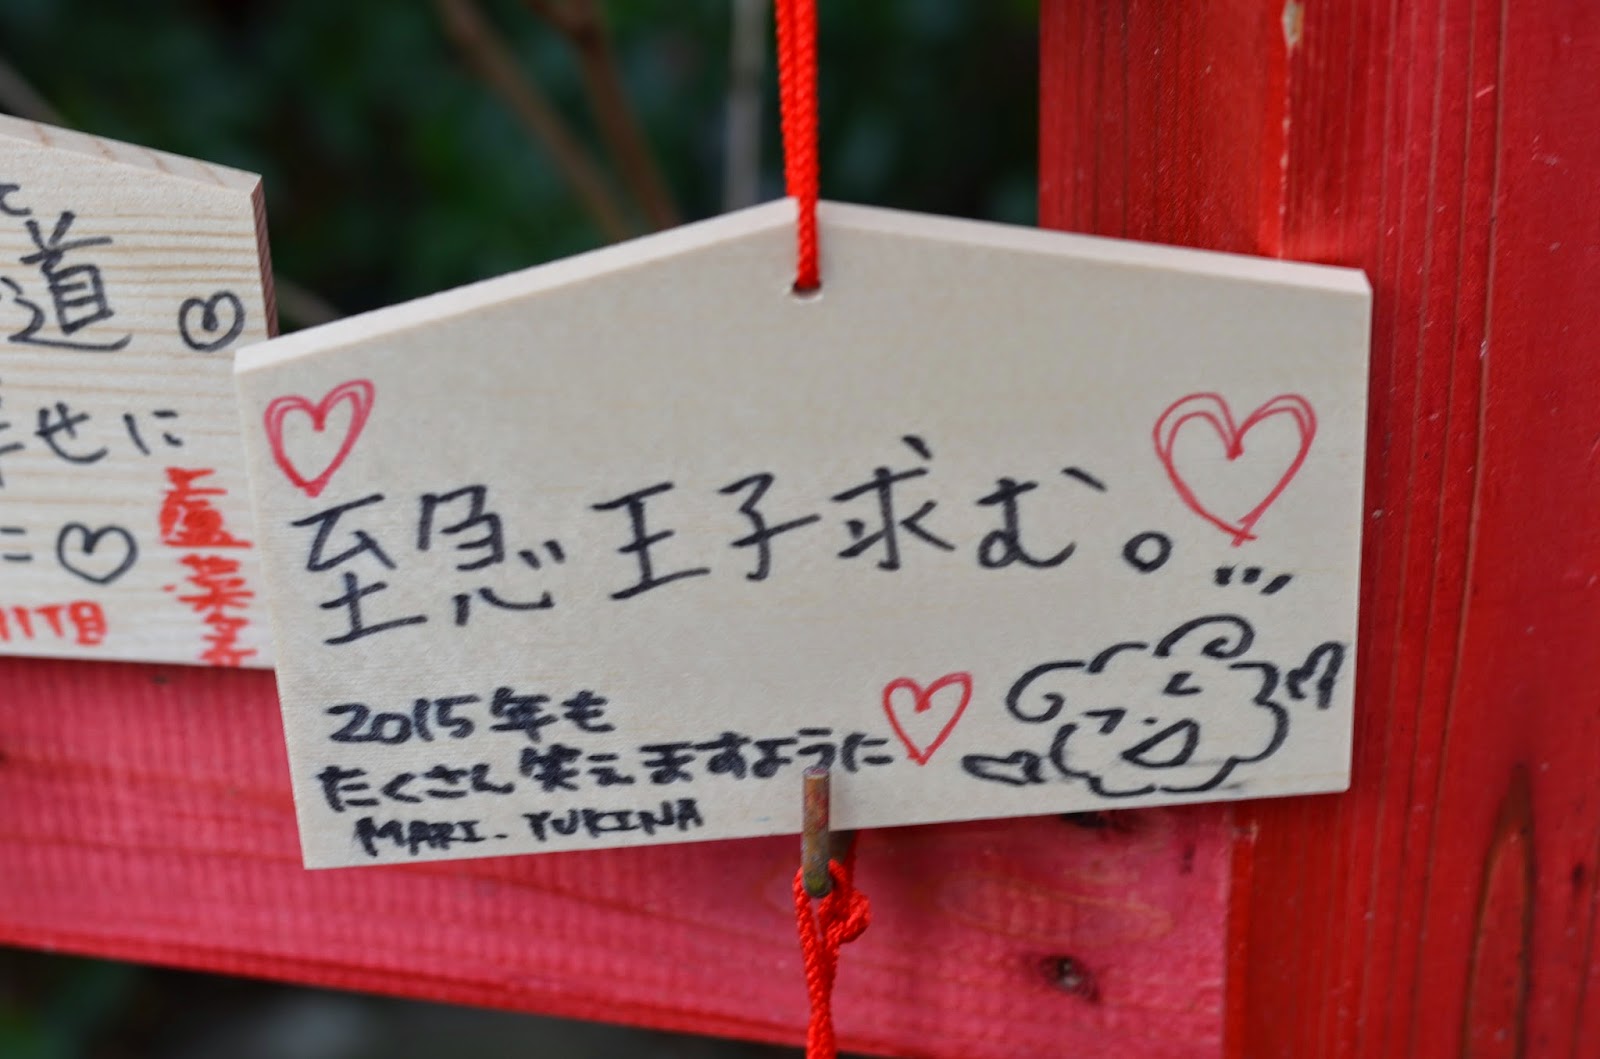 至急王子求む。
2015年も
たくさん笑えますように
MARI. YUKINA
道
せに
に